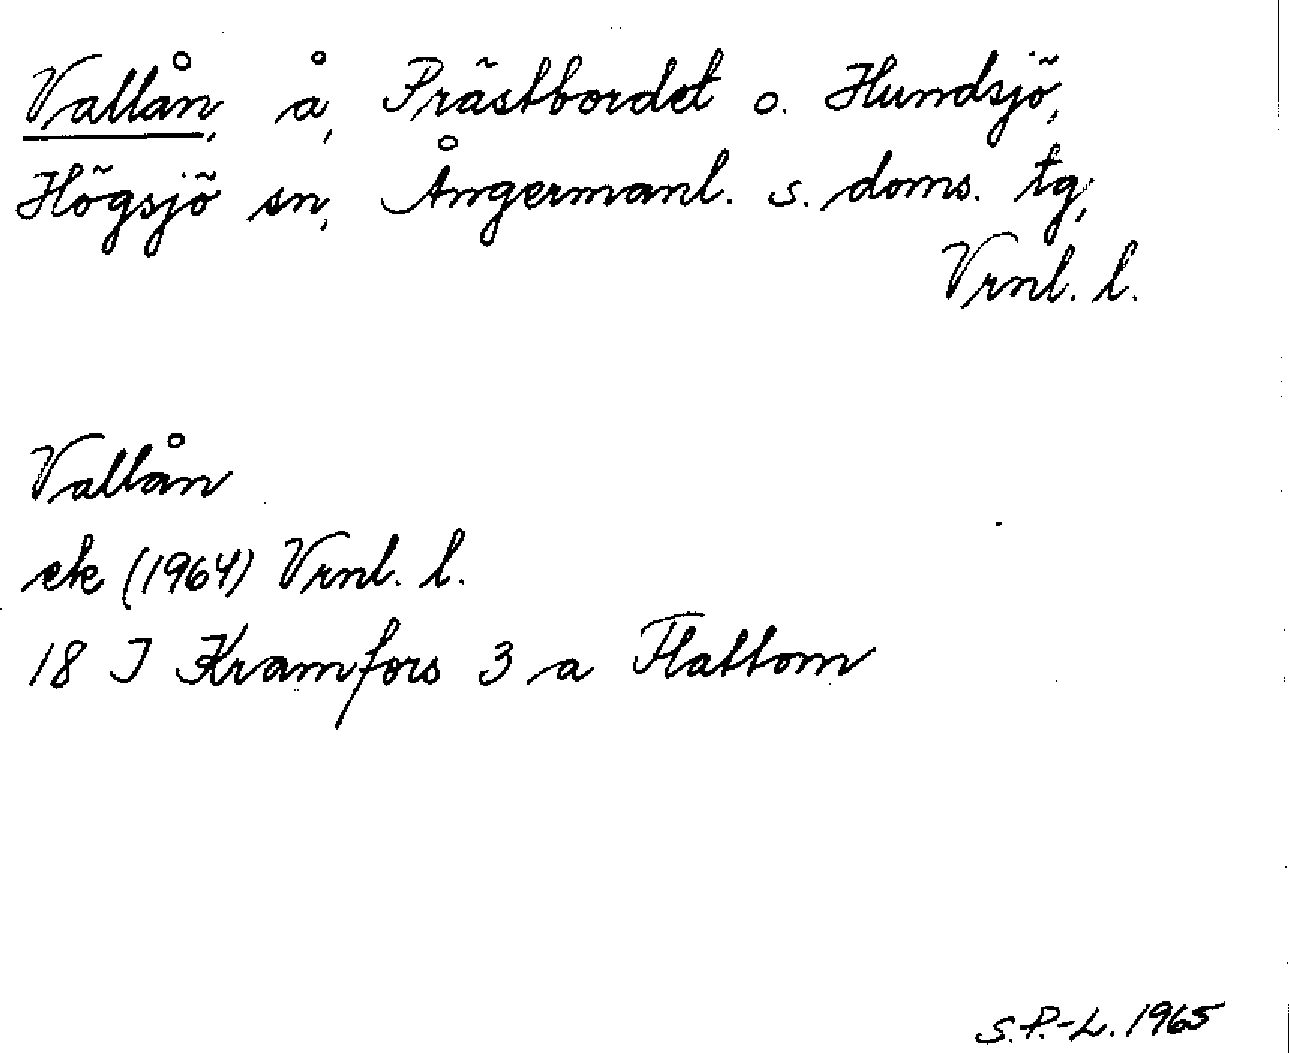 Vallån, å, Prästbordet o. Hundsjö,
Högsjö sn, Ångermanl. s. doms. tg,
Vrnl. l.
Vallån
ek (1964) Vrnl. l.
18 I Kramfors 3 a Flattom
S.P.-L. 1965